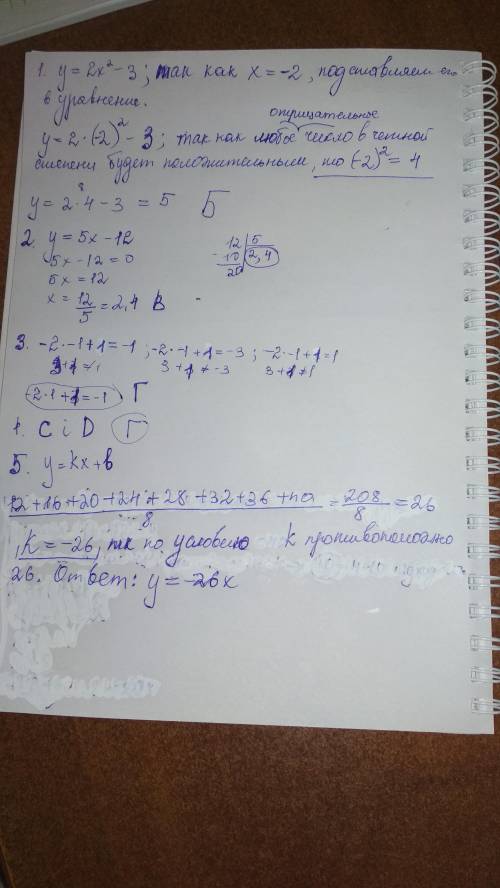 1. y = 2x² - 3 ; так как x = -2, подставляем его
в уравнение.
отрицательное
y = 2 · (-2)² - 3 ; так как любое число в четной
степени будет положительным, то (-2)² = 4
y = 2 · 4 - 3 = 5 Б
8
2. y = 5x - 12
5x - 12 = 0
5x = 12
x = 12/5 = 2,4 В
12 | 5
- 10 | 2,4
20
3. -2 · -1 + 1 = -1 ; -2 · -1 + 1 = -3 ; -2 · -1 + 1 = 1
3 + 1 ≠ -3
3 + 1 ≠ 1
-2 · 1 + 1 = -1 Г
4. C i D Г
5. y = kx + b
12 + 16 + 20 + 24 + 28 + 32 + 36 + 40 / 8 = 208 / 8 = 26
k = -26, тк по условию k противоположно
26. Ответ: y = -26x